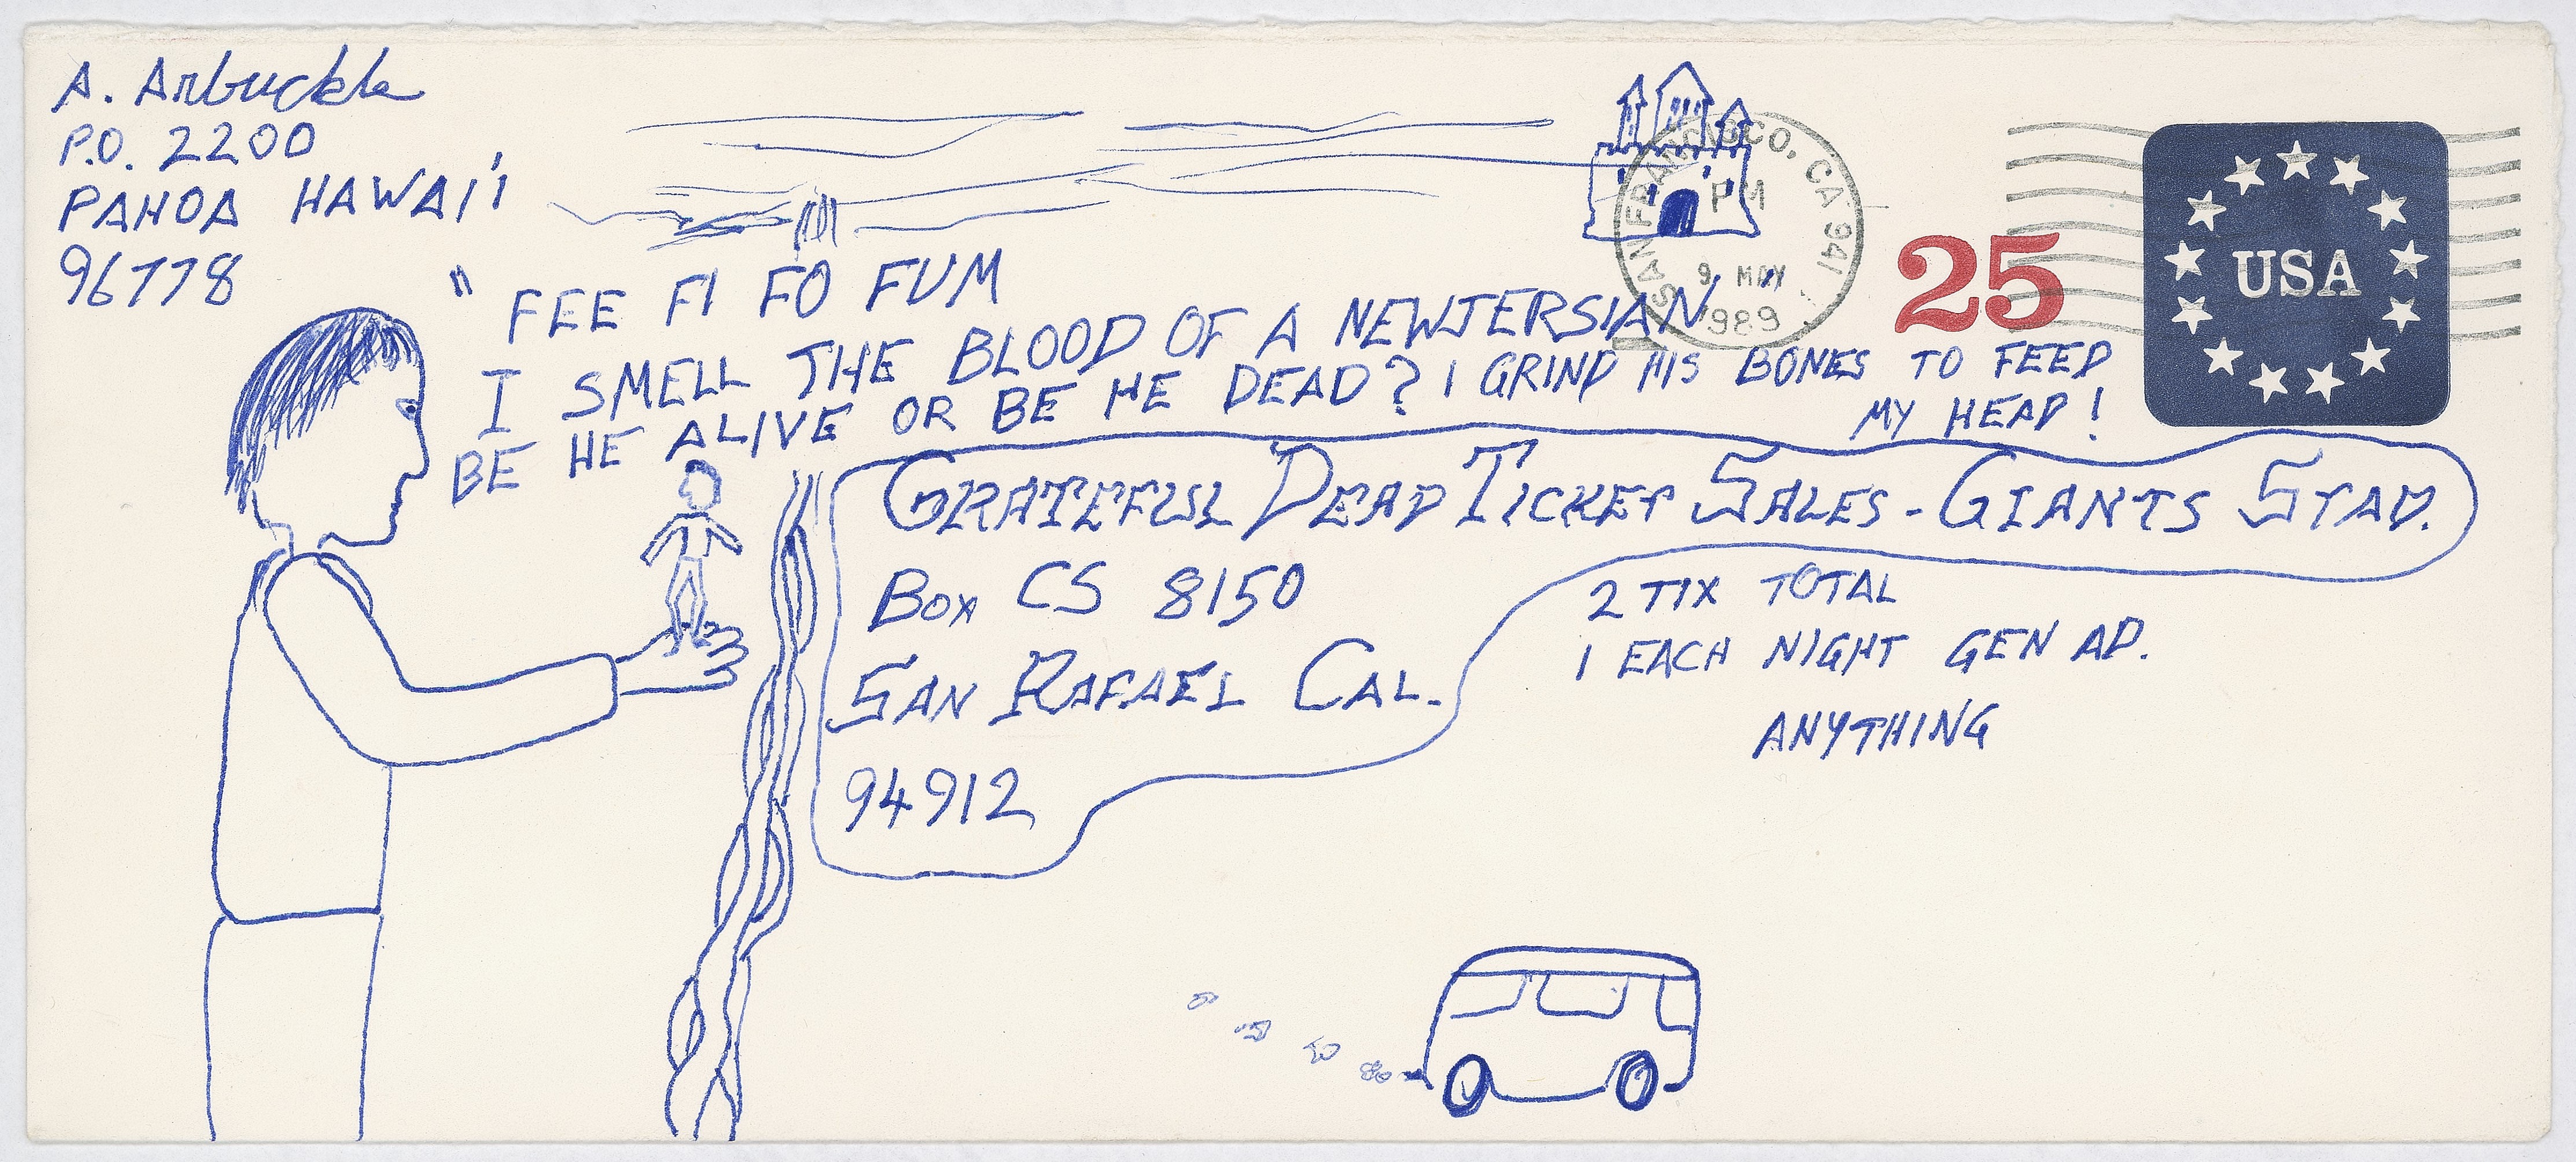 A. Arbuckle
P.O. 2200
PAHOA HAWAI'I
96778
SAN FRANCISCO, CA 941
PM
9 MAY
1989
25
USA
" FEE FI FO FUM
I SMELL THE BLOOD OF A NEWJERSIAN
BE HE ALIVE OR BE HE DEAD? I GRIND HIS BONES TO FEED
MY HEAD!
GRATEFUL DEAD TICKET SALES - GIANTS STAD.
BOX CS 8150
SAN RAFAEL CAL.
94912
2 TIX TOTAL
1 EACH NIGHT GEN AD.
ANYTHING